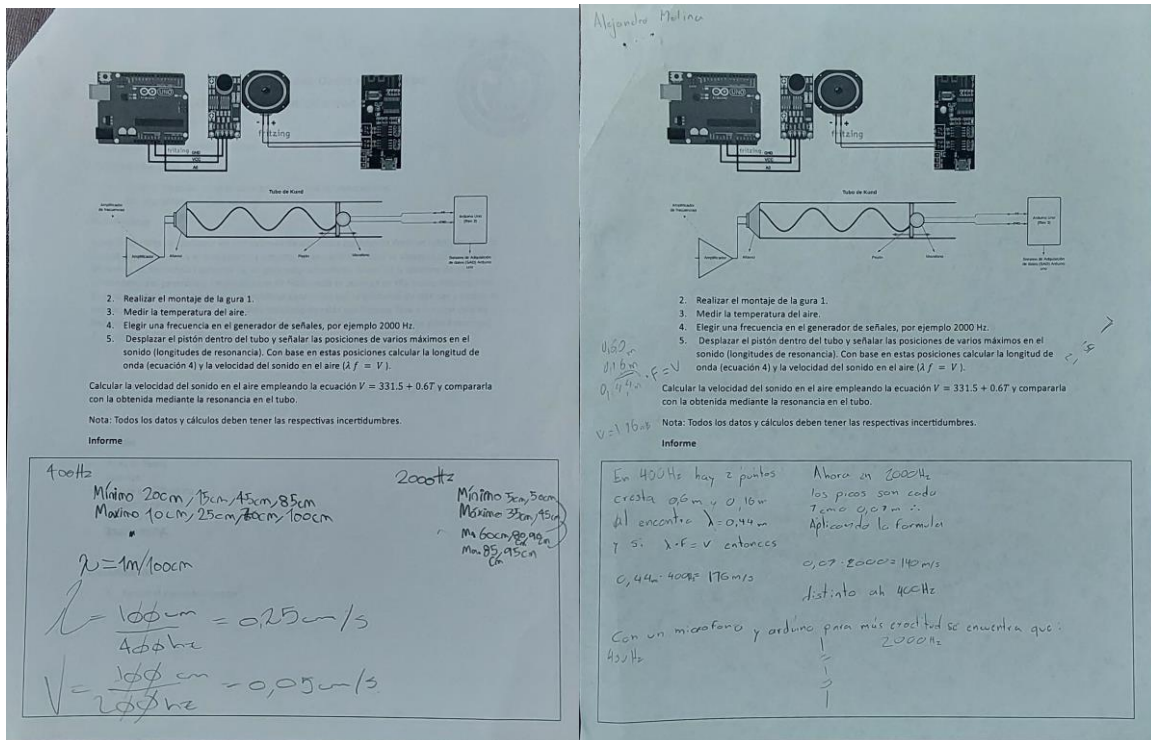 fritzing
fritzing
GND
VCC
A0
Tubo de Kund
Amplificador
Altavoz
Pistón
Micrófono
Arduino Uno
2. Realizar el montaje de la gura 1.
3. Medir la temperatura del aire.
4. Elegir una frecuencia en el generador de señales, por ejemplo 2000 Hz.
5. Desplazar el pistón dentro del tubo y señalar las posiciones de varios máximos en el
sonido (longitudes de resonancia). Con base en estas posiciones calcular la longitud de
onda (ecuación 4) y la velocidad del sonido en el aire (λ f = V ).
Calcular la velocidad del sonido en el aire empleando la ecuación V = 331.5 + 0.6T y compararla
con la obtenida mediante la resonancia en el tubo.
Nota: Todos los datos y cálculos deben tener las respectivas incertidumbres.
Informe
400Hz
Mínimo 20cm, 15cm, 45cm, 85cm
Maximo 10cm, 25cm, 70cm, 100cm
λ = 1m/100cm
= 100 cm / 400 hz = 0,25 cm/s
V = 100 cm / 200 hz = 0,05 cm/s
2000Hz
Mínimo 5cm, 50cm
Máximo 35cm, 45cm
85, 95cm
Alejandro Molina
fritzing
fritzing
GND
VCC
A0
Tubo de Kund
Amplificador
Altavoz
Pistón
Micrófono
Arduino Uno
2. Realizar el montaje de la gura 1.
3. Medir la temperatura del aire.
4. Elegir una frecuencia en el generador de señales, por ejemplo 2000 Hz.
5. Desplazar el pistón dentro del tubo y señalar las posiciones de varios máximos en el
sonido (longitudes de resonancia). Con base en estas posiciones calcular la longitud de
onda (ecuación 4) y la velocidad del sonido en el aire (λ f = V ).
0,60m
0,16m
0,44m · F = V
Calcular la velocidad del sonido en el aire empleando la ecuación V = 331.5 + 0.6T y compararla
con la obtenida mediante la resonancia en el tubo.
Nota: Todos los datos y cálculos deben tener las respectivas incertidumbres.
Informe
En 400Hz hay 2 puntos
cresta 0,6m y 0,16m
al encontra λ=0,44m
y si λ·F=V entonces
0,44m·400Hz=176m/s
Ahora en 2000Hz
los picos son cada
7cm o 0,07m ∴
Aplicando la formula
0,07·2000=140m/s
distinto ah 400Hz
Con un microfono y arduino para más exactitud se encuentra que:
400Hz
2000Hz